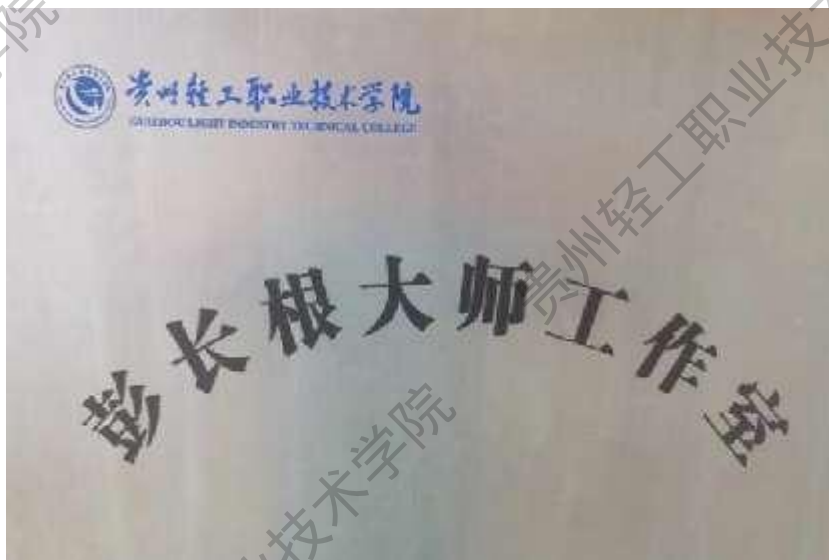 贵州轻工职业技术学院
GUIZHOU LIGHT INDUSTRY TECHNICAL COLLEGE
彭长根大师工作室
贵州轻工职业技
业技术学院
院